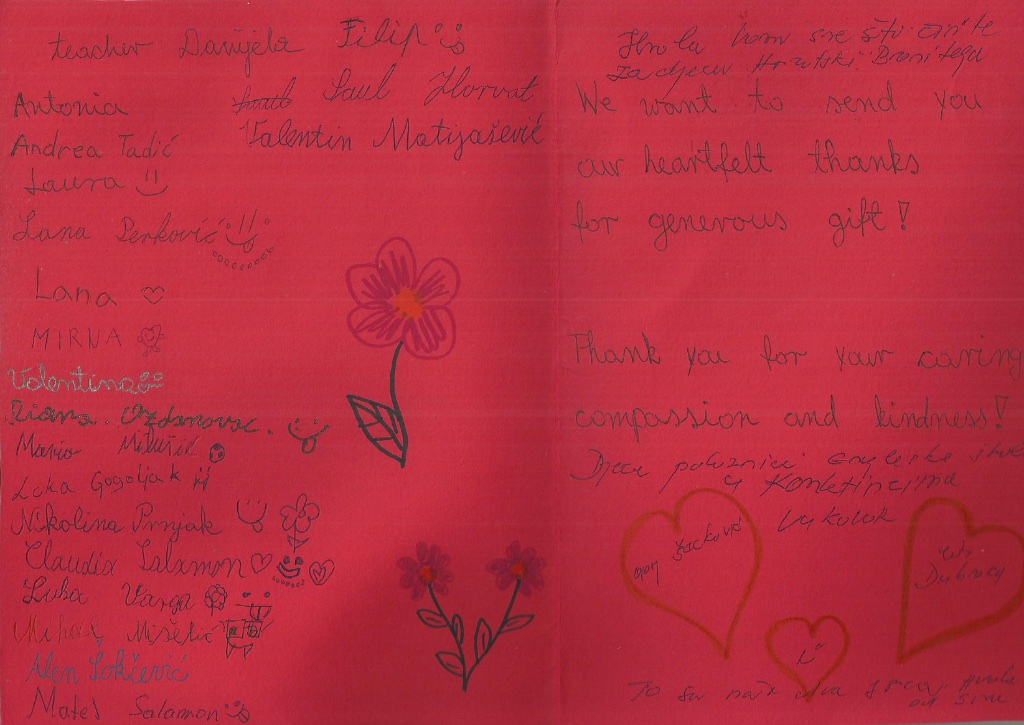 teacher Danijela Filip
Antonia
Saul Horvat
Andrea Tadić
Valentin Matijašević
Laura
Lana Perković
Lana
MIRNA
Valentina
Mario
Luka Gogoljak
Nikolina Prnjak
Claudia Salamon
Luka Varga
Mihael Mišetić
Alen Lokčević
Mateš Salamon
Hvala Vam sve što činite
za djecu Hrvatski Branitelja
We want to send you
our heartfelt thanks
for generous gift!
Thank you for your caring
compassion and kindness!
Djeca polaznici engleske škole
u
Vukovar
Dubravka
i
To su naša dva srca. Hvala
od srca